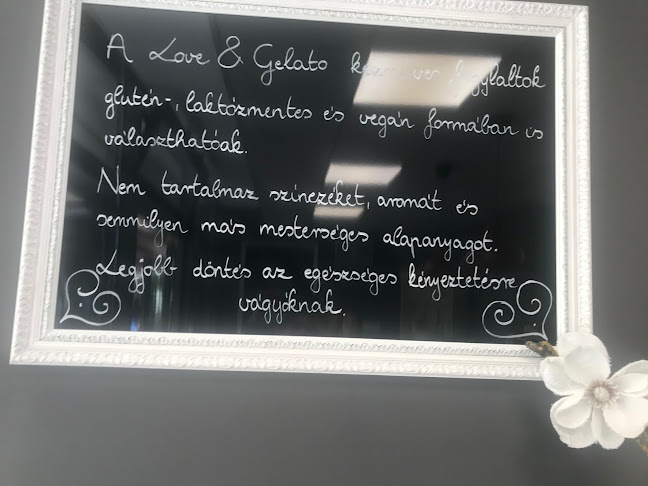 A Love & Gelato kézműves fagylaltok
glutén-, laktózmentes és vegán formában is
választhatóak.
Nem tartalmaz színezéket, aromát és
semmilyen más mesterséges alapanyagot.
Legjobb döntés az egészséges kényeztetésre
vágyóknak.